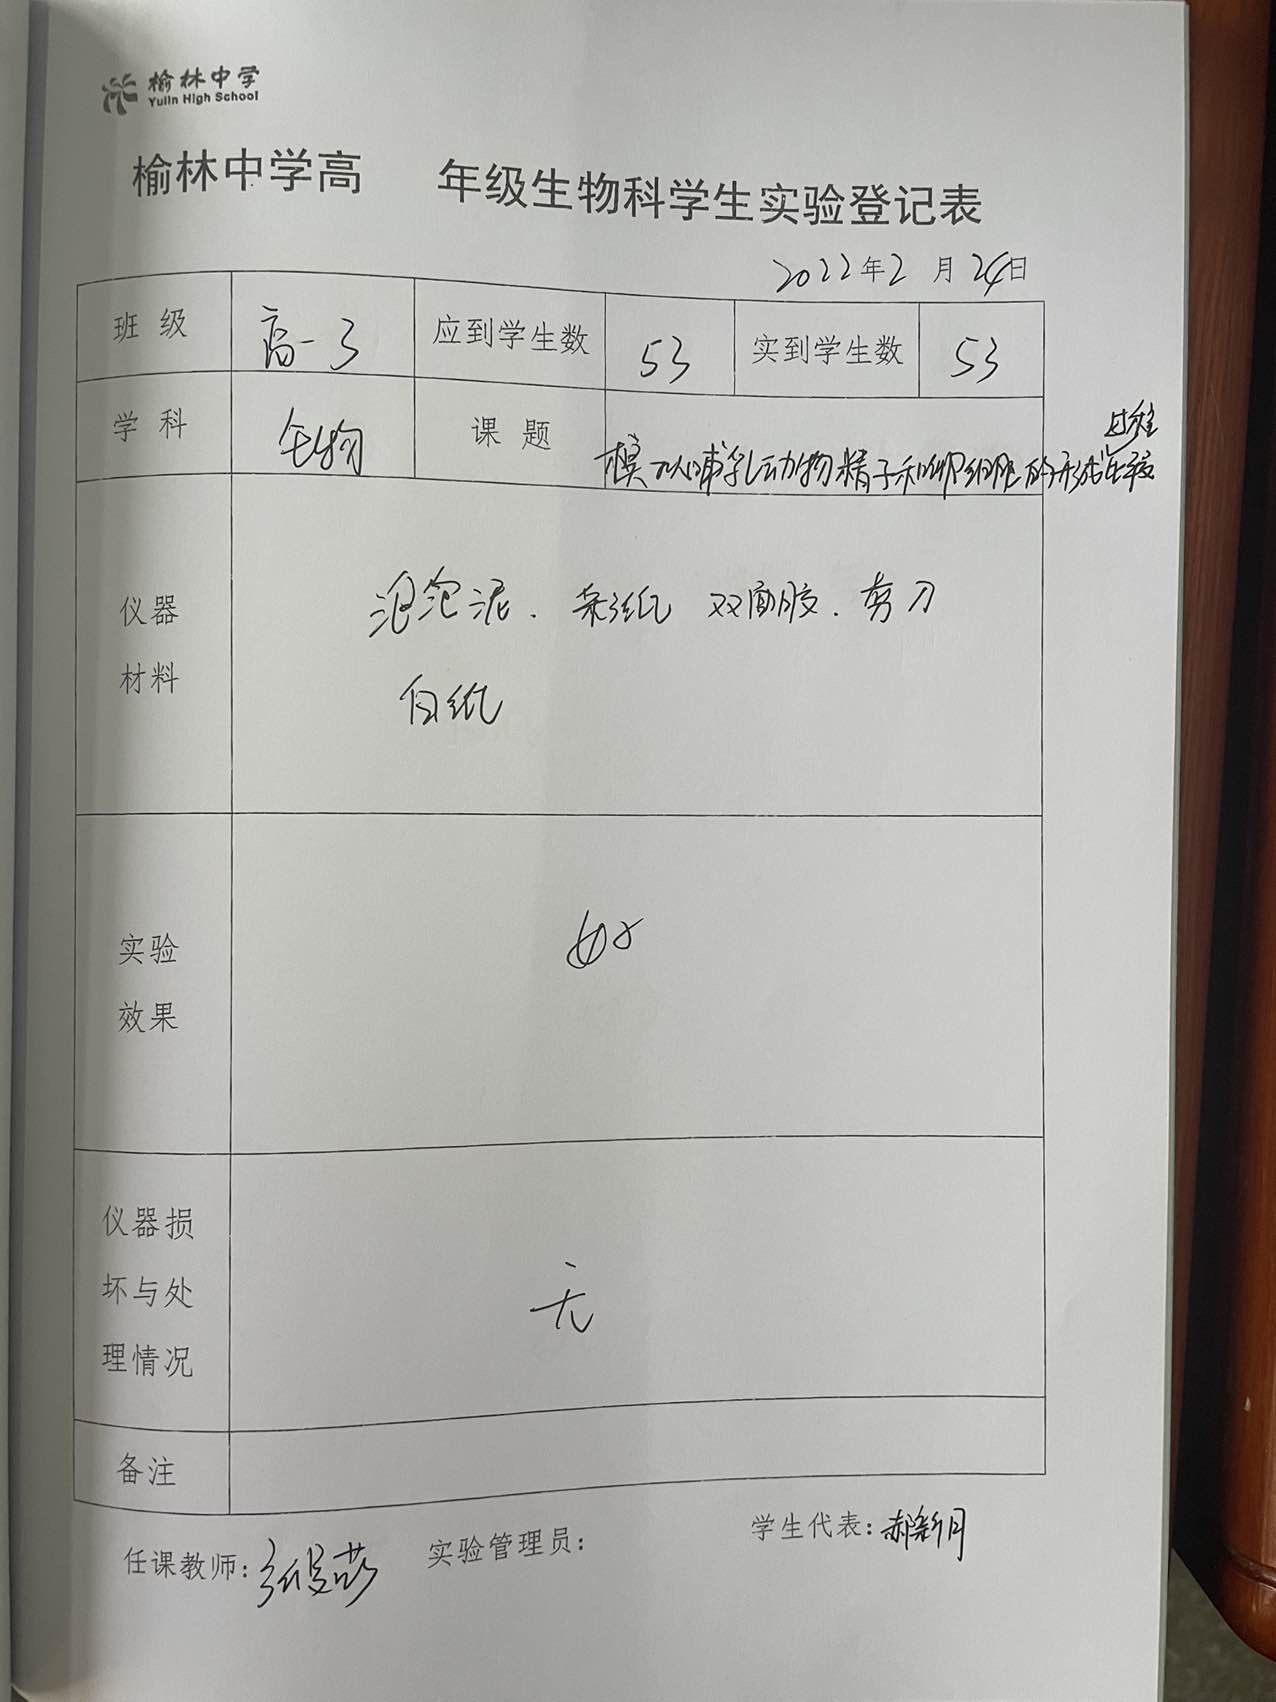 榆林中学
Yulin High School
榆林中学高 年级生物科学生实验登记表
2022年2月24日
班级 高一3 应到学生数 53 实到学生数 53
学科 生物 课题 模拟哺乳动物精子和卵细胞的形成过程
仪器
材料
泡泡泥、彩纸 双面胶、剪刀
白纸
实验
效果
好
仪器损
坏与处
理情况
无
备注
任课教师: 实验管理员: 学生代表:郝新月